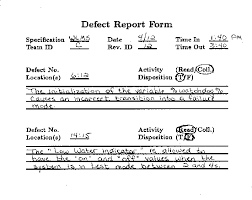 Defect Report Form
Specification WLMS Date 9/12 Time In 1:40 PM
Team ID C Rev. ID 12 Time Out 3:40
Defect No. Activity (Read/Coll.)
Location(s) 6:12 Disposition (T/F)
The initialization of the variable %watchdog%
causes an incorrect transition into a failure
mode.
Defect No. Activity (Read/Coll.)
Location(s) 14:15 Disposition (T/F)
The "Low Water indicator" is allowed to
have the "on" and "off" values when the
system is in test mode between 2 and 4s.